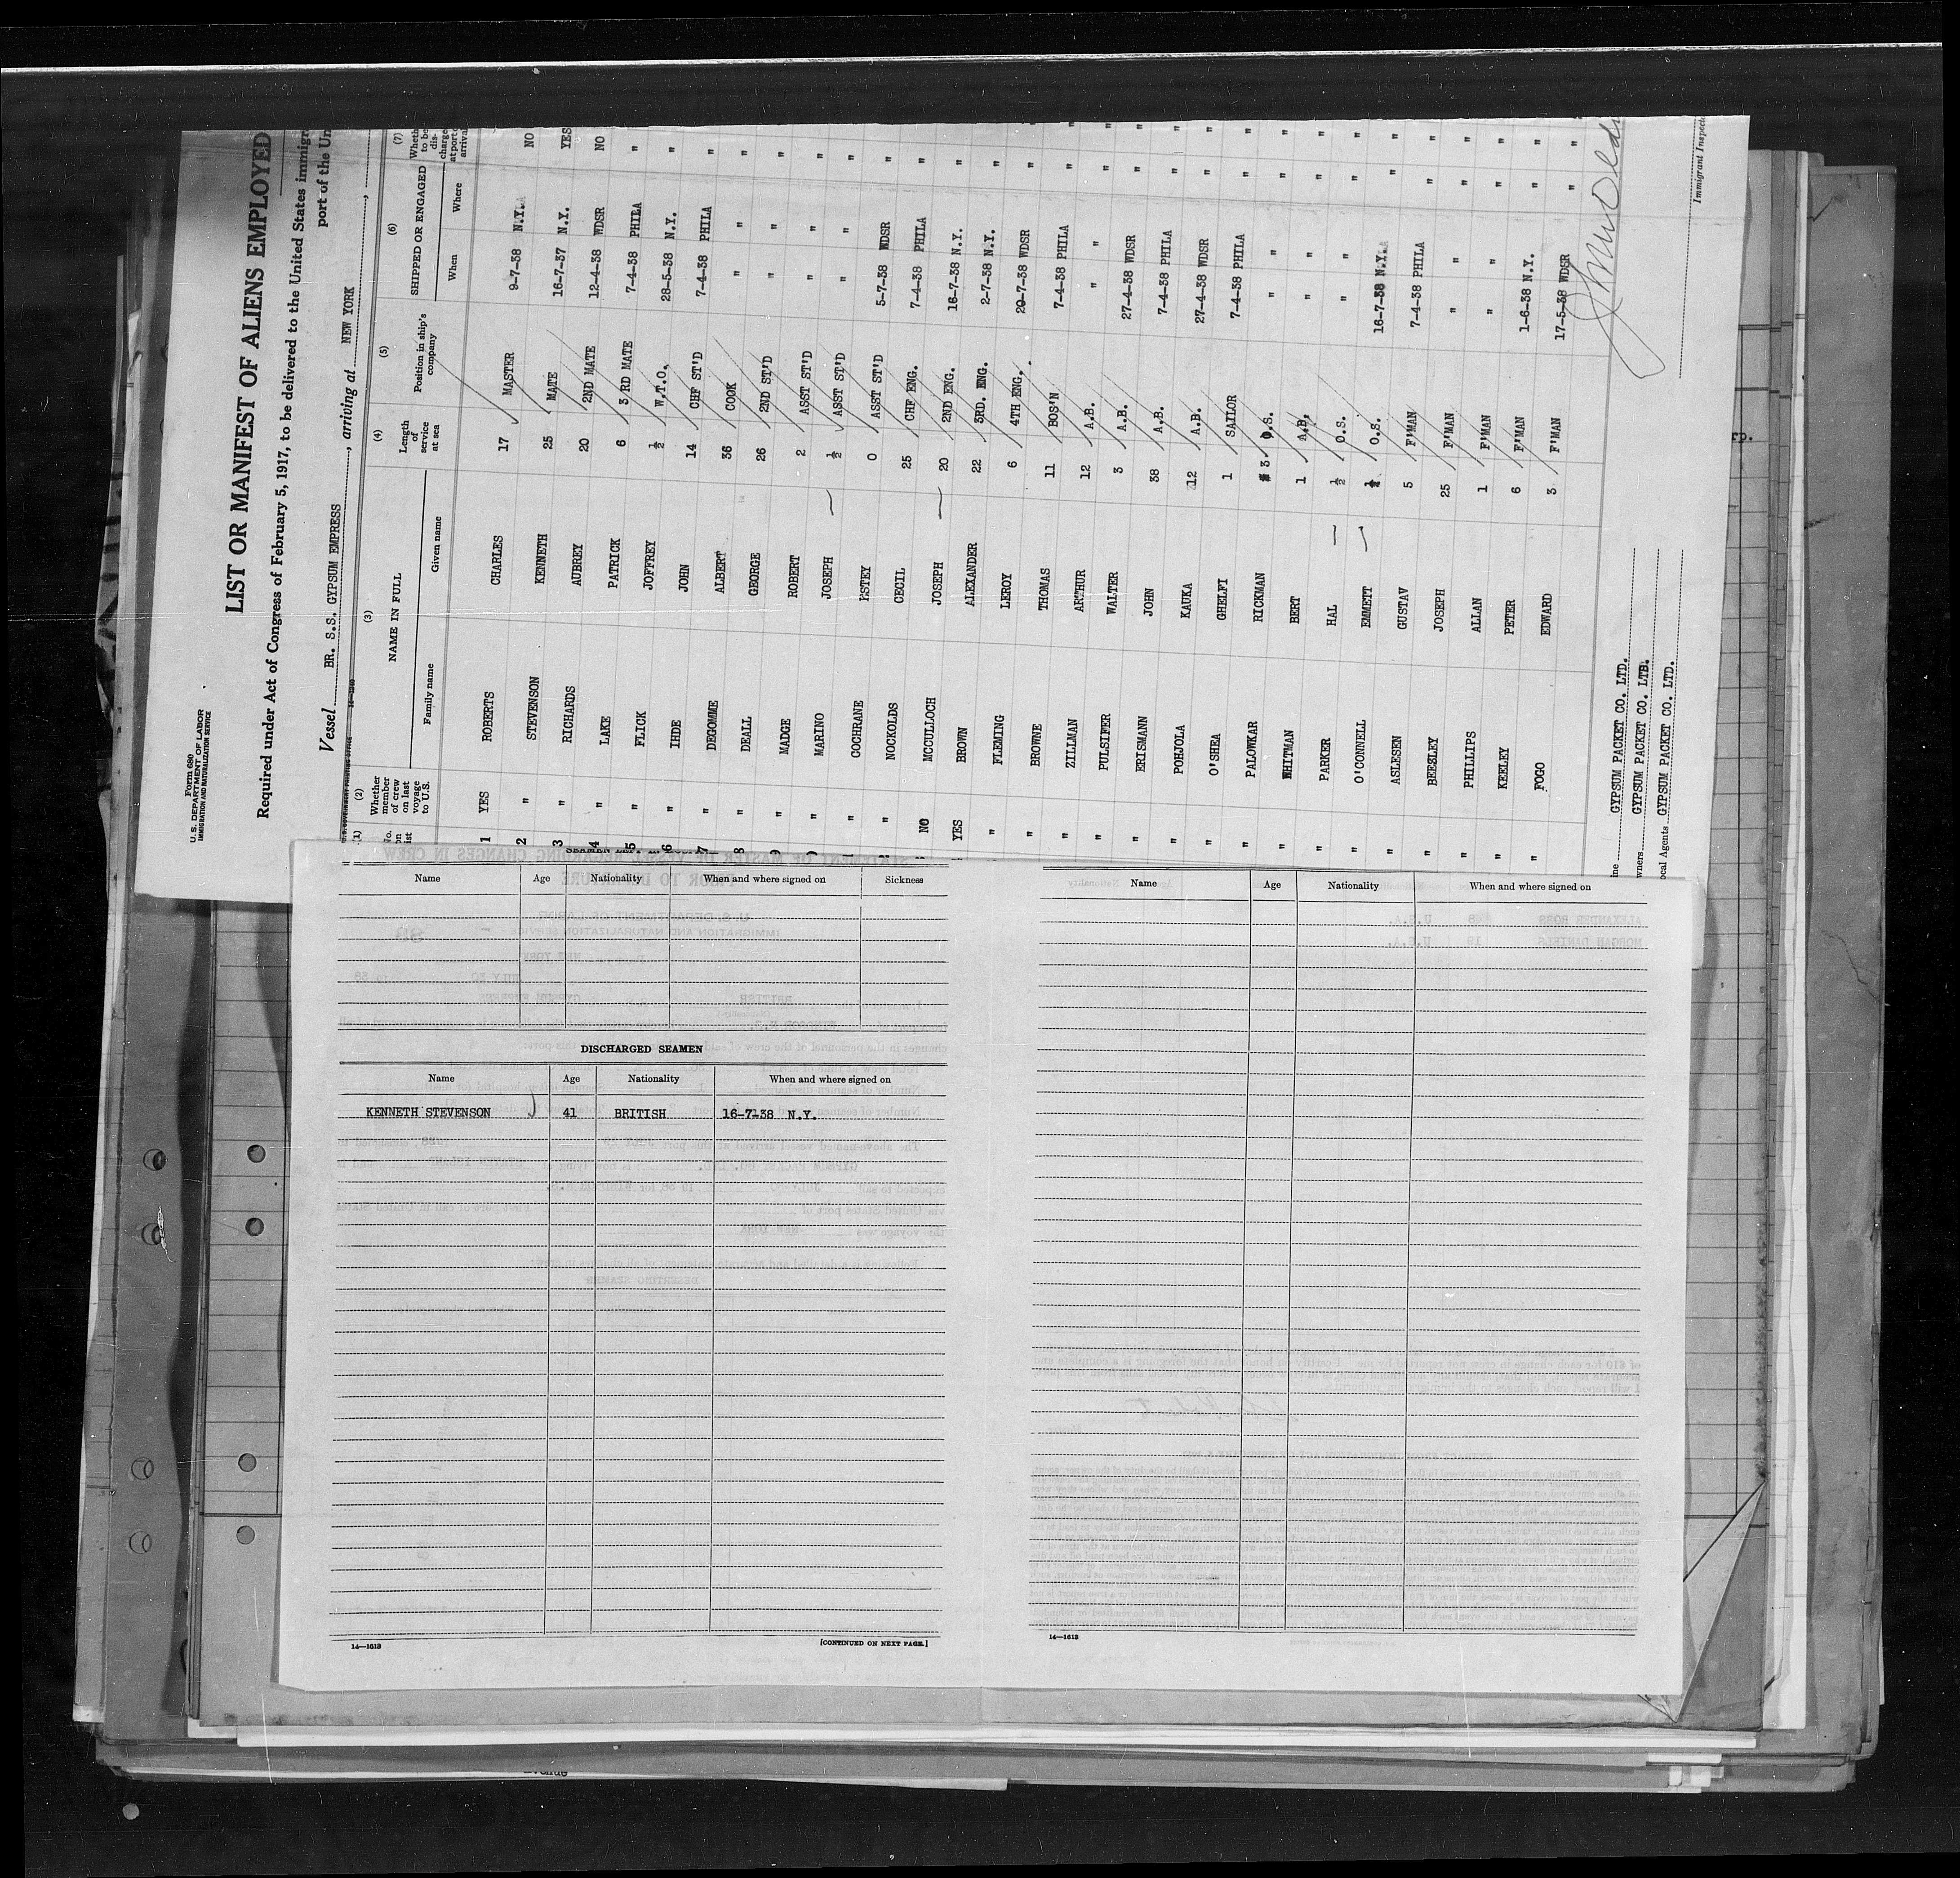 Form 680
U.S. DEPARTMENT OF LABOR
IMMIGRATION AND NATURALIZATION SERVICE
LIST OR MANIFEST OF ALIENS EMPLOYED
Required under Act of Congress of February 5, 1917, to be delivered to the United States immigr
port of the Un
Vessel BR. S.S. GYPSUM EMPRESS, arriving at NEW YORK,
(1) (2) (3) (4) (5) (6) (7)
No. on list Whether member of crew on last voyage to U.S. NAME IN FULL Family name Given name Length of service at sea Position in ship's company SHIPPED OR ENGAGED When Where Wheth to be dis- charge at port arrival
1 YES ROBERTS CHARLES 17 MASTER 9-7-38 N.Y. NO
2 " STEVENSON KENNETH 25 MATE 16-7-37 N.Y. YES
3 " RICHARDS AUBREY 20 2ND MATE 12-4-38 WDSR NO
4 " LAKE PATRICK 6 3 RD MATE 7-4-38 PHILA "
5 " FLICK JOFFREY ½ W.T.O. 28-5-38 N.Y. "
6 " IHDE JOHN 14 CHF ST'D 7-4-38 PHILA "
7 " DEGOMME ALBERT 36 COOK " " "
8 " DEALL GEORGE 26 2ND ST'D " " "
" MADGE ROBERT 2 ASST ST'D " " "
" MARINO JOSEPH ½ ASST ST'D " " "
" COCHRANE ESTEY 0 ASST ST'D 5-7-38 WDSR "
" NOCKOLDS CECIL 25 CHF ENG. 7-4-38 PHILA "
NO MCCULLOCH JOSEPH 20 2ND ENG. 16-7-38 N.Y. "
YES BROWN ALEXANDER 22 3RD. ENG. 2-7-38 N.Y. "
" FLEMING LEROY 6 4TH ENG. 20-7-38 WDSR "
" BROWNE THOMAS 11 BOS'N 7-4-38 PHILA "
" ZILLMAN ARTHUR 12 A.B. " " "
" PULSIFER WALTER 3 A.B. 27-4-38 WDSR "
" ERISMANN JOHN 38 A.B. 7-4-38 PHILA "
" POHJOLA KAUKA 12 A.B. 27-4-38 WDSR "
" O'SHEA GHELFI 1 SAILOR 7-4-38 PHILA "
" PALOWKAR RICKMAN 3 O.S. " " "
" WHITMAN BERT 1 A.B. " " "
" PARKER HAL ½ O.S. " " "
" O'CONNELL EMMETT ½ O.S. 16-7-38 N.Y. "
" ASLESEN GUSTAV 5 F'MAN 7-4-38 PHILA "
" BEESLEY JOSEPH 25 F'MAN " " "
" PHILLIPS ALLAN 1 F'MAN " " "
" KEELEY PETER 6 F'MAN 1-6-38 N.Y. "
" FOGO EDWARD 3 F'MAN 17-5-38 WDSR "
ine GYPSUM PACKET CO. LTD.
wners GYPSUM PACKET CO. LTD.
ocal Agents GYPSUM PACKET CO. LTD.
Immigrant Inspecto
Name Age Nationality When and where signed on Sickness
DISCHARGED SEAMEN
Name Age Nationality When and where signed on
KENNETH STEVENSON 41 BRITISH 16-7-38 N.Y.
14—1613 [CONTINUED ON NEXT PAGE.]
Name Age Nationality When and where signed on
14—1613